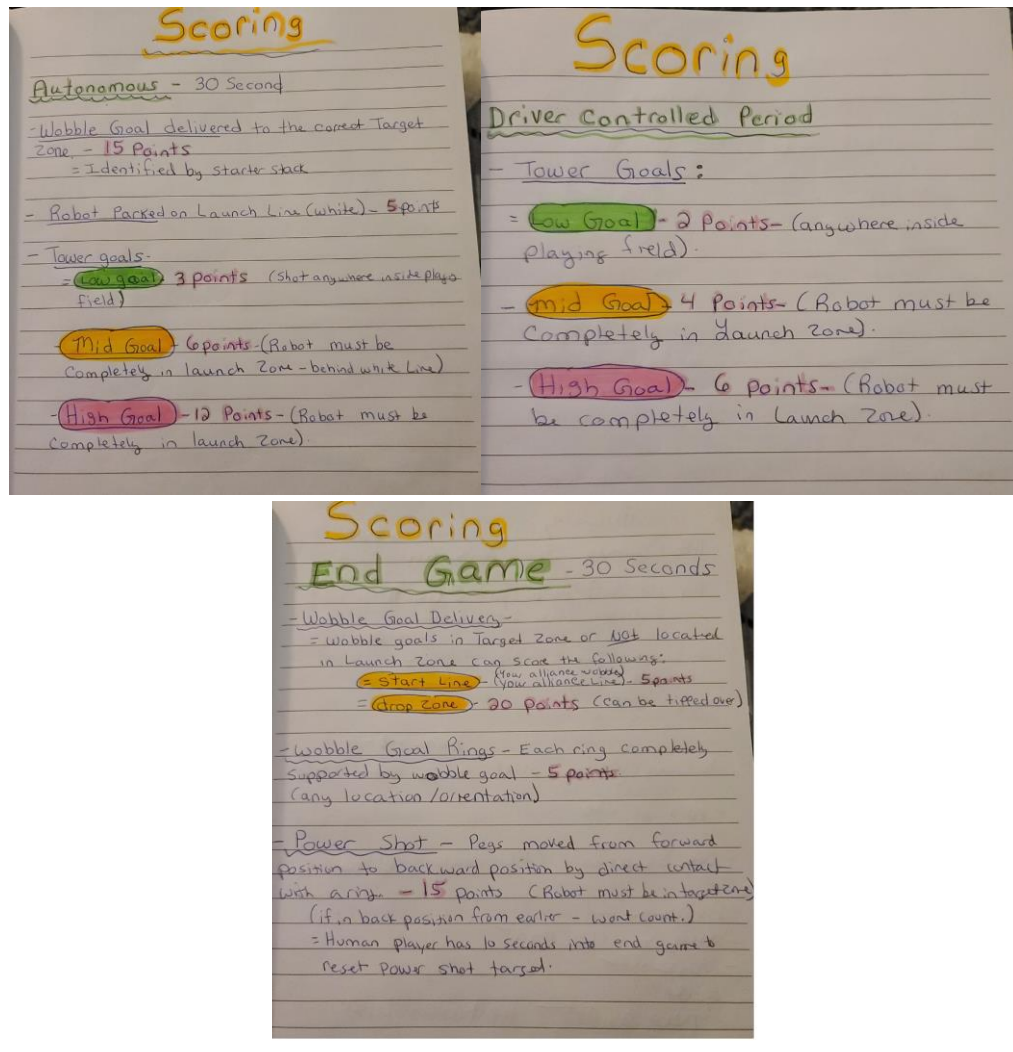 Scoring
Autonomous - 30 Second
- Wobble Goal delivered to the correct Target
Zone - 15 Points
= Identified by starter stack
- Robot Parked on Launch Line (white) - 5 points
- Tower goals -
= Low goal - 3 points (Shot anywhere inside
field)
- Mid Goal - 6 points - (Robot must be
Completely in launch Zone - behind white Line)
- High Goal - 12 Points - (Robot must be
Completely in launch Zone).
Scoring
Driver Controlled Period
- Tower Goals:
= Low Goal - 2 Points - (anywhere inside
playing field).
- Mid Goal - 4 Points - (Robot must be
Completely in Launch Zone).
- High Goal - 6 points - (Robot must
be completely in Launch Zone).
Scoring
End Game - 30 Seconds
- Wobble Goal Delivery -
= Wobble goals in Target Zone or Not located
in Launch Zone can score the following:
= Start Line - (Your alliance wobble)
(your alliance Line) - 5 points
= drop Zone - 20 points (can be tipped over)
- Wobble Goal Rings - Each ring completely
Supported by wobble goal - 5 points
(any location / orientation)
- Power Shot - Pegs moved from forward
position to backward position by direct contact
with a ring - 15 points (Robot must be in target zone)
(if in back position from earlier - wont count.)
= Human player has 10 seconds into end game to
reset Power shot target.